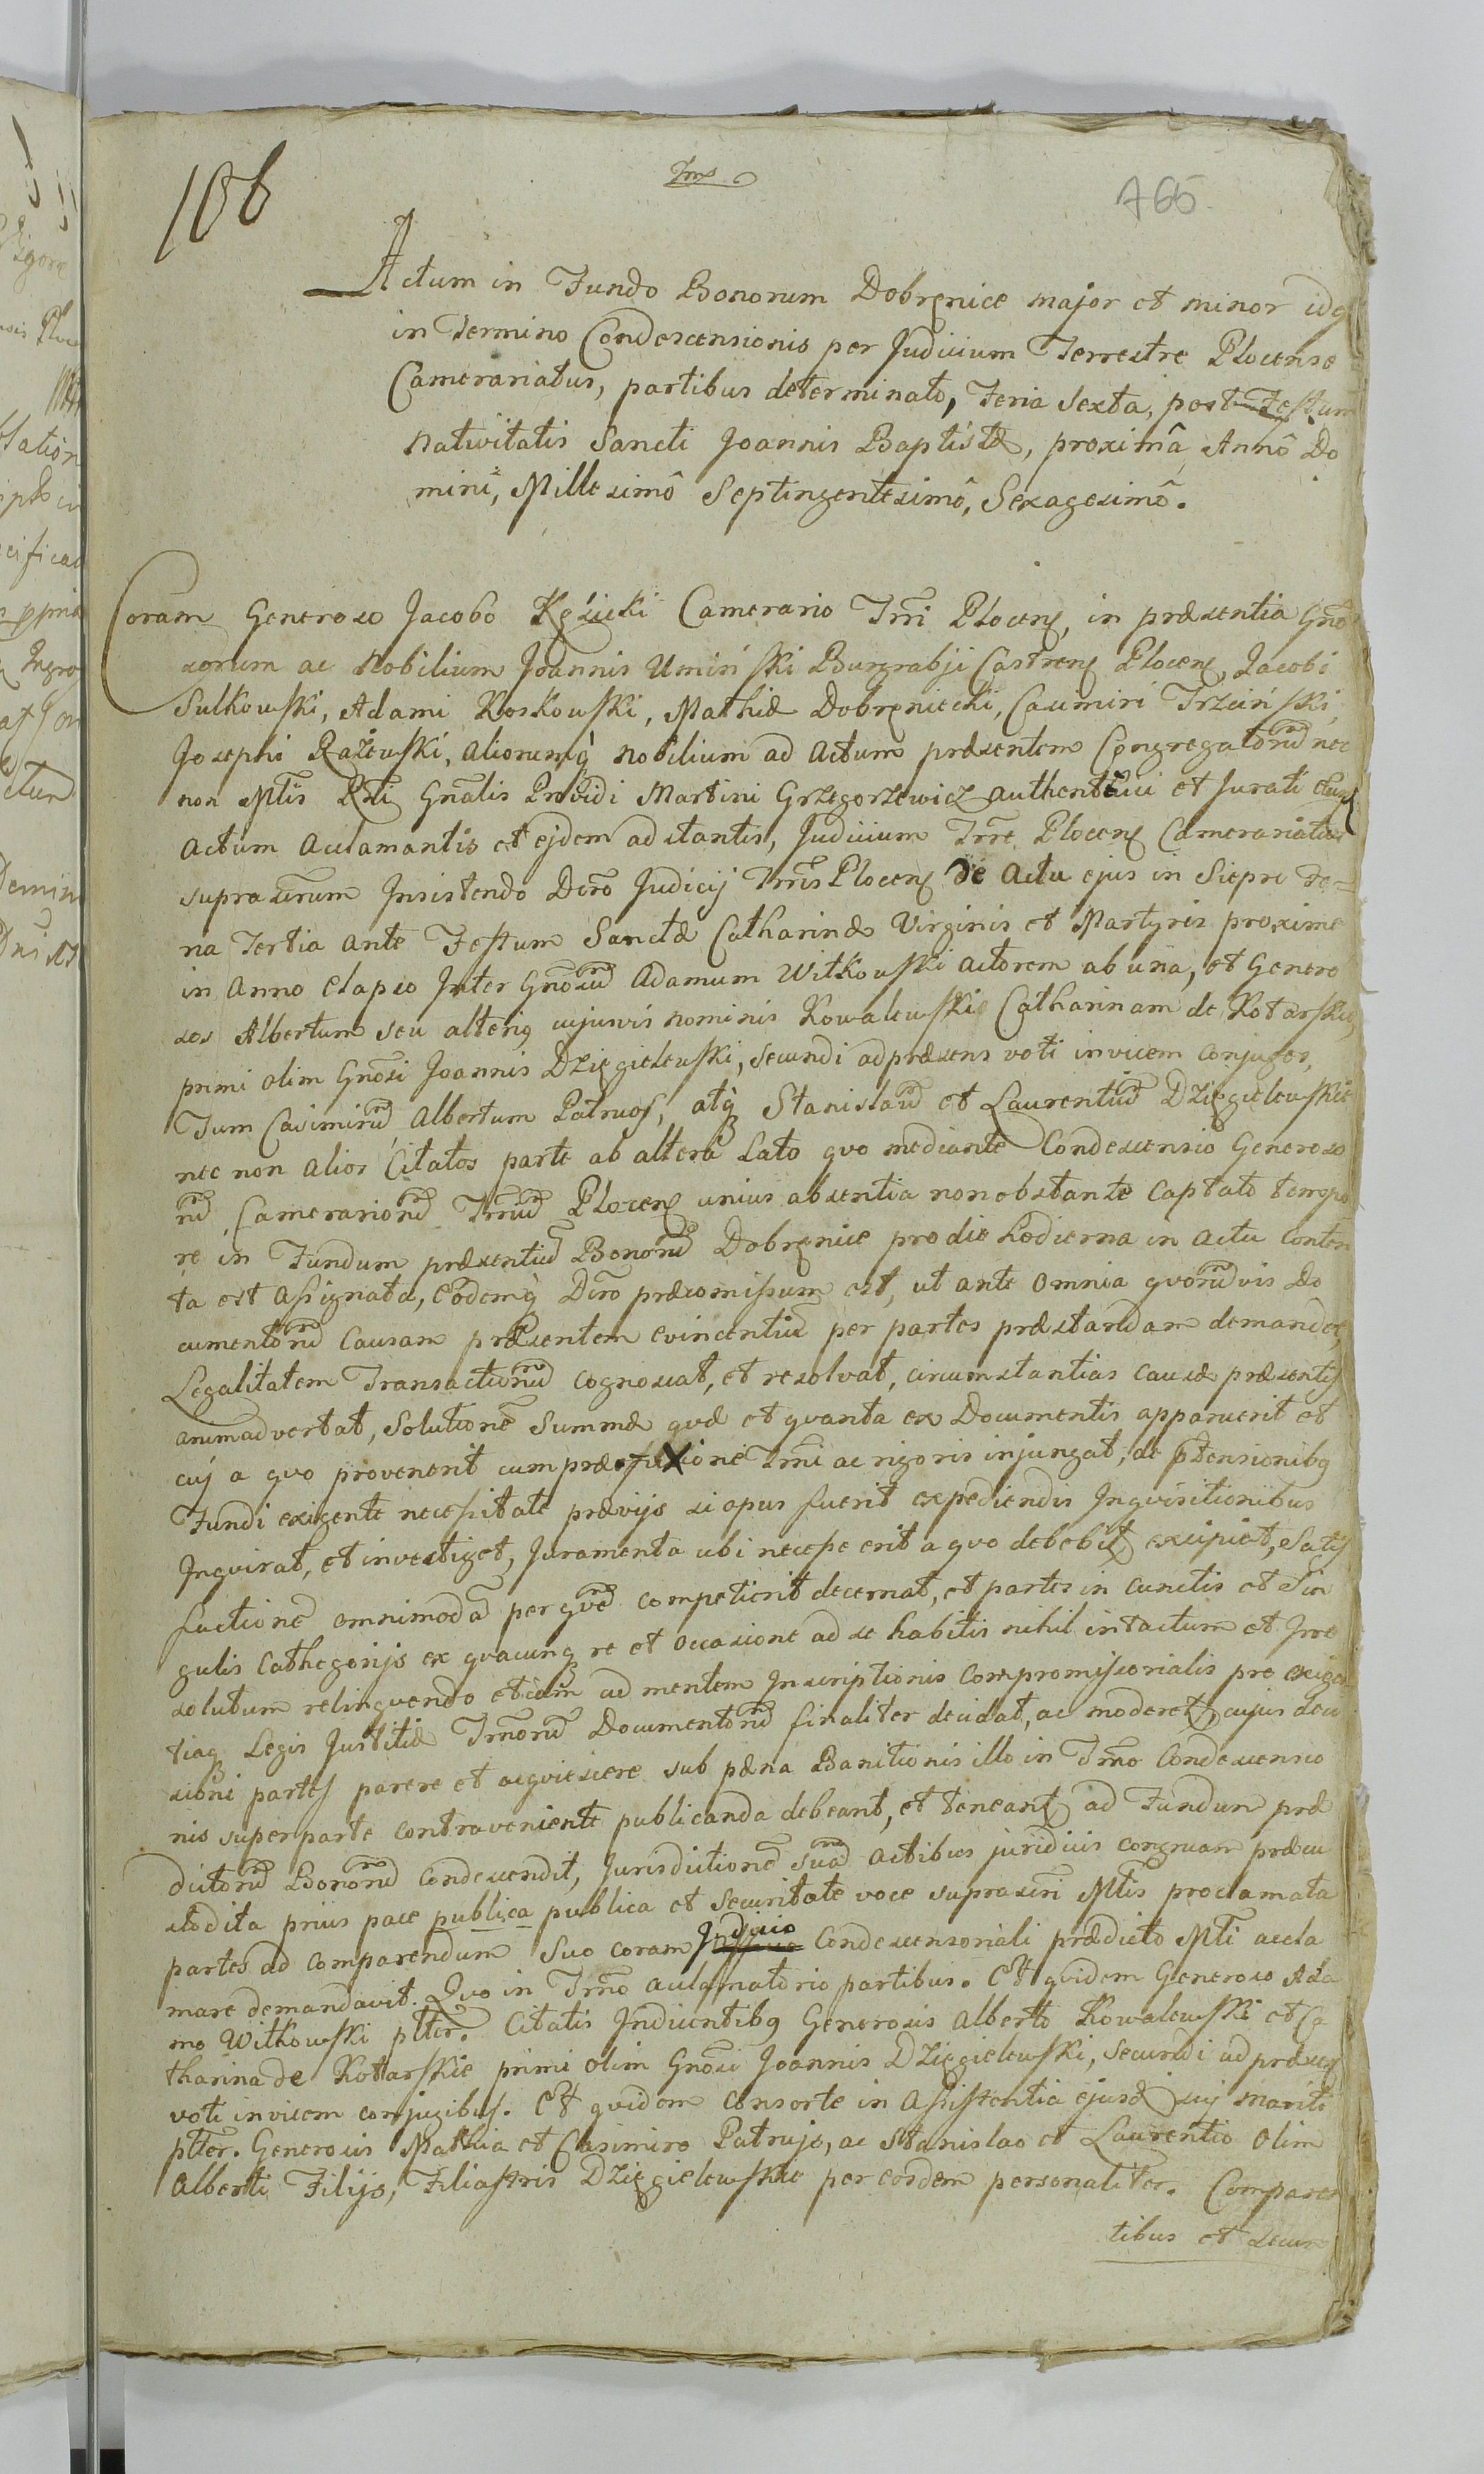 106
765
Actum in Fundo Bonorum Dobręnice major et minor idq
in Termino Condescensionis per Judicium Terrestre Plocense
Camerariatus, partibus determinato, Feria Sexta, post Festum
Nativitatis Sancti Joannis Baptistæ, proximâ, Annô Do
mini, Millesimô Septingentesimô, Sexagesimô.
Coram Generoso Jacobo Kęsicki Camerario Trri Plocen, in præsentia Gnõ
sorum ac Nobilium Joannis Umiński Burgrabji Castren Plocen, Jacobi
Sulkowski, Adami Koskowski, Mathiæ Dobręniecki, Casimiri Trzciński,
Josephi Rażewski, aliorumq̀ Nobilium ad Actum præsentem Congregatorũ nec
non Mtis Rni Gñalis Providi Martini Grzegorzewicz authentici et Jurati
Actum Acclamantis et ejdem adstantis, Judicium Trre Plocen Camerariatus
suprascrum Insistendo Dcro Judicij Trris Plocen de Actu ejus in Siepre Fe=
ria Tertia ante Festum Sanctæ Catharinæ Virginis et Martyris proxime
in Anno elapso Inter Gnosũ Adamum Witkowski actorem ab una, et Genero
sos Albertum seu alteriq cujusvis nominis Kowalewskie Catharinam de Kotarskie,
primi olim Gnosi Joannis Dzięgielewski, secundi adpræsens voti invicem conjuges,
Tum Casimirũ, Albertum Patruos, atq̀ Stanislaũ et Laurentiũ Dzięgielewskie
nec non alios Citatos parte ab alterâ Lato quo mediante Condescensio Generoso
rũ Camerariorũ Trriũ Plocen unius absentia non obstante captato tempo
re in Fundum præsentiũ Bonorũ Dobręnice pro die hodierna in actu conten
ta est assignata, Eodemq̀ Dcro præcomissum est, ut ante omnia quorũvis Do
cumentorũ Causam præsentem evincentiũ per partes præstandam demandet,
Legalitatem Transactionũ cognoscat, et resolvat, circumstantias causæ præsentis
animadvertat, Solutionẽ Summæ quæ et quanta ex Documentis apparuerit et
cuj a quo provenerit cum præfixione Trmi ac rigoris injungat, de ptensionibq
Fundi exigente necessitate prævijs si opus fuerit expediendis Inquisitionibus
Inquirat, et investiget, Juramenta ubi necesse erit a quo debebit excipiat, Satis
factionẽ omnimodã per quẽ competierit decernat, et partes in cunctis et sin
gulis Cathegorijs ex quacunq re et occasione ad se habitis nihil intactum et Irre
solutum relinquendo etiam ad mentem Inscriptionis Compromissorialis pro exigen
tiaq Legis Justitiæ Trmorũ Documentorũ finaliter decidat, ac moderet, cujus deci
sioni partes parere et acquiescere sub pæna Banitionis illo in Trmo Condescensio
nis super parte contraveniente publicanda debeant, et teneant ad Fundum præ
dictorũ Bonorũ Condescendit, Jurisdictionẽ suã actibus juridicis congruam præcu
stodita prius pace publica publica et Securitate voce suprascri Mtis proclamata
partes ad comparendum suo coram Judicio Condescensoriali prædicto Mti accla
mare demandavit. Quo in Trmo acclamatorio partibus. Et quidem Generoso Ada
mo Witkowski plter. Citatis Inducentibq Generosis Alberto Kowalewski et Ca
tharina de Kottarskie primi olim Gnosi Joannis Dzięgielewski, secundi ad præsen
voti invicem conjugibus. Et quidem consorte in Assistentia ejusd suj mariti
plter. Generosis Mathia et Casimiro Patrujs, ac Stanislao et Laurentio olim
Alberti Filijs, Filiastris Dzięgielewskie per eosdem personaliter. Comparen
tibus et secun